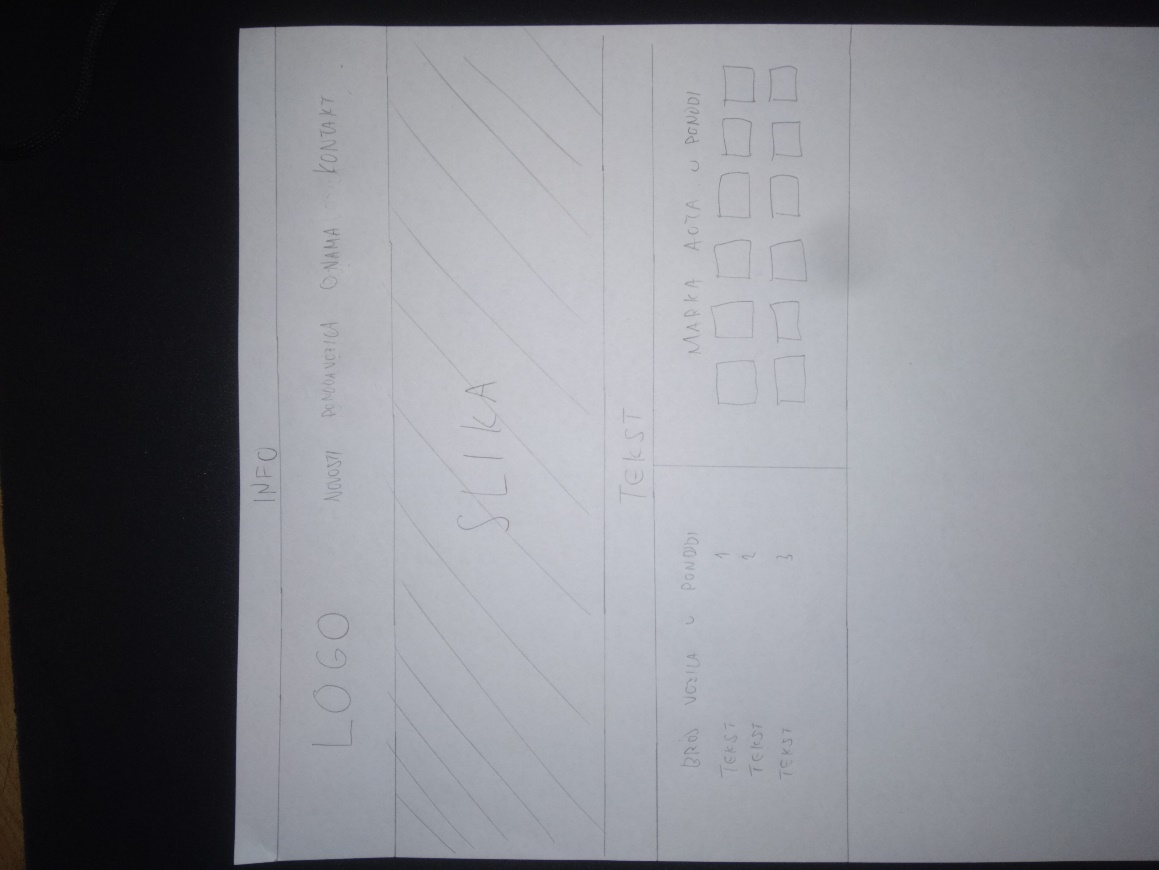 INFO
LOGO NOVOSTI PONUDA VOZILA O NAMA ... KONTAKT
SLIKA
TEKST
BROJ VOZILA U PONUDI
TEKST 1
TEKST 2
TEKST 3
MARKA AUTA U PONUDI